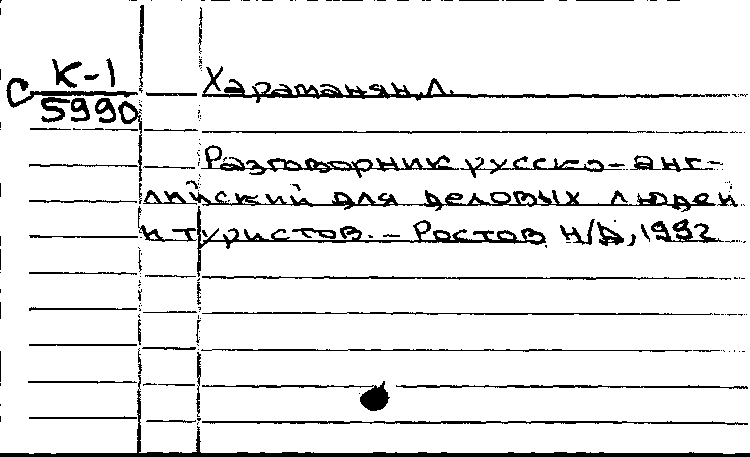 С К-1
5990
Хараманян, Л.
Разговорник русско-анг-
лийский для деловых людей
и туристов. - Ростов н/Д, 1992